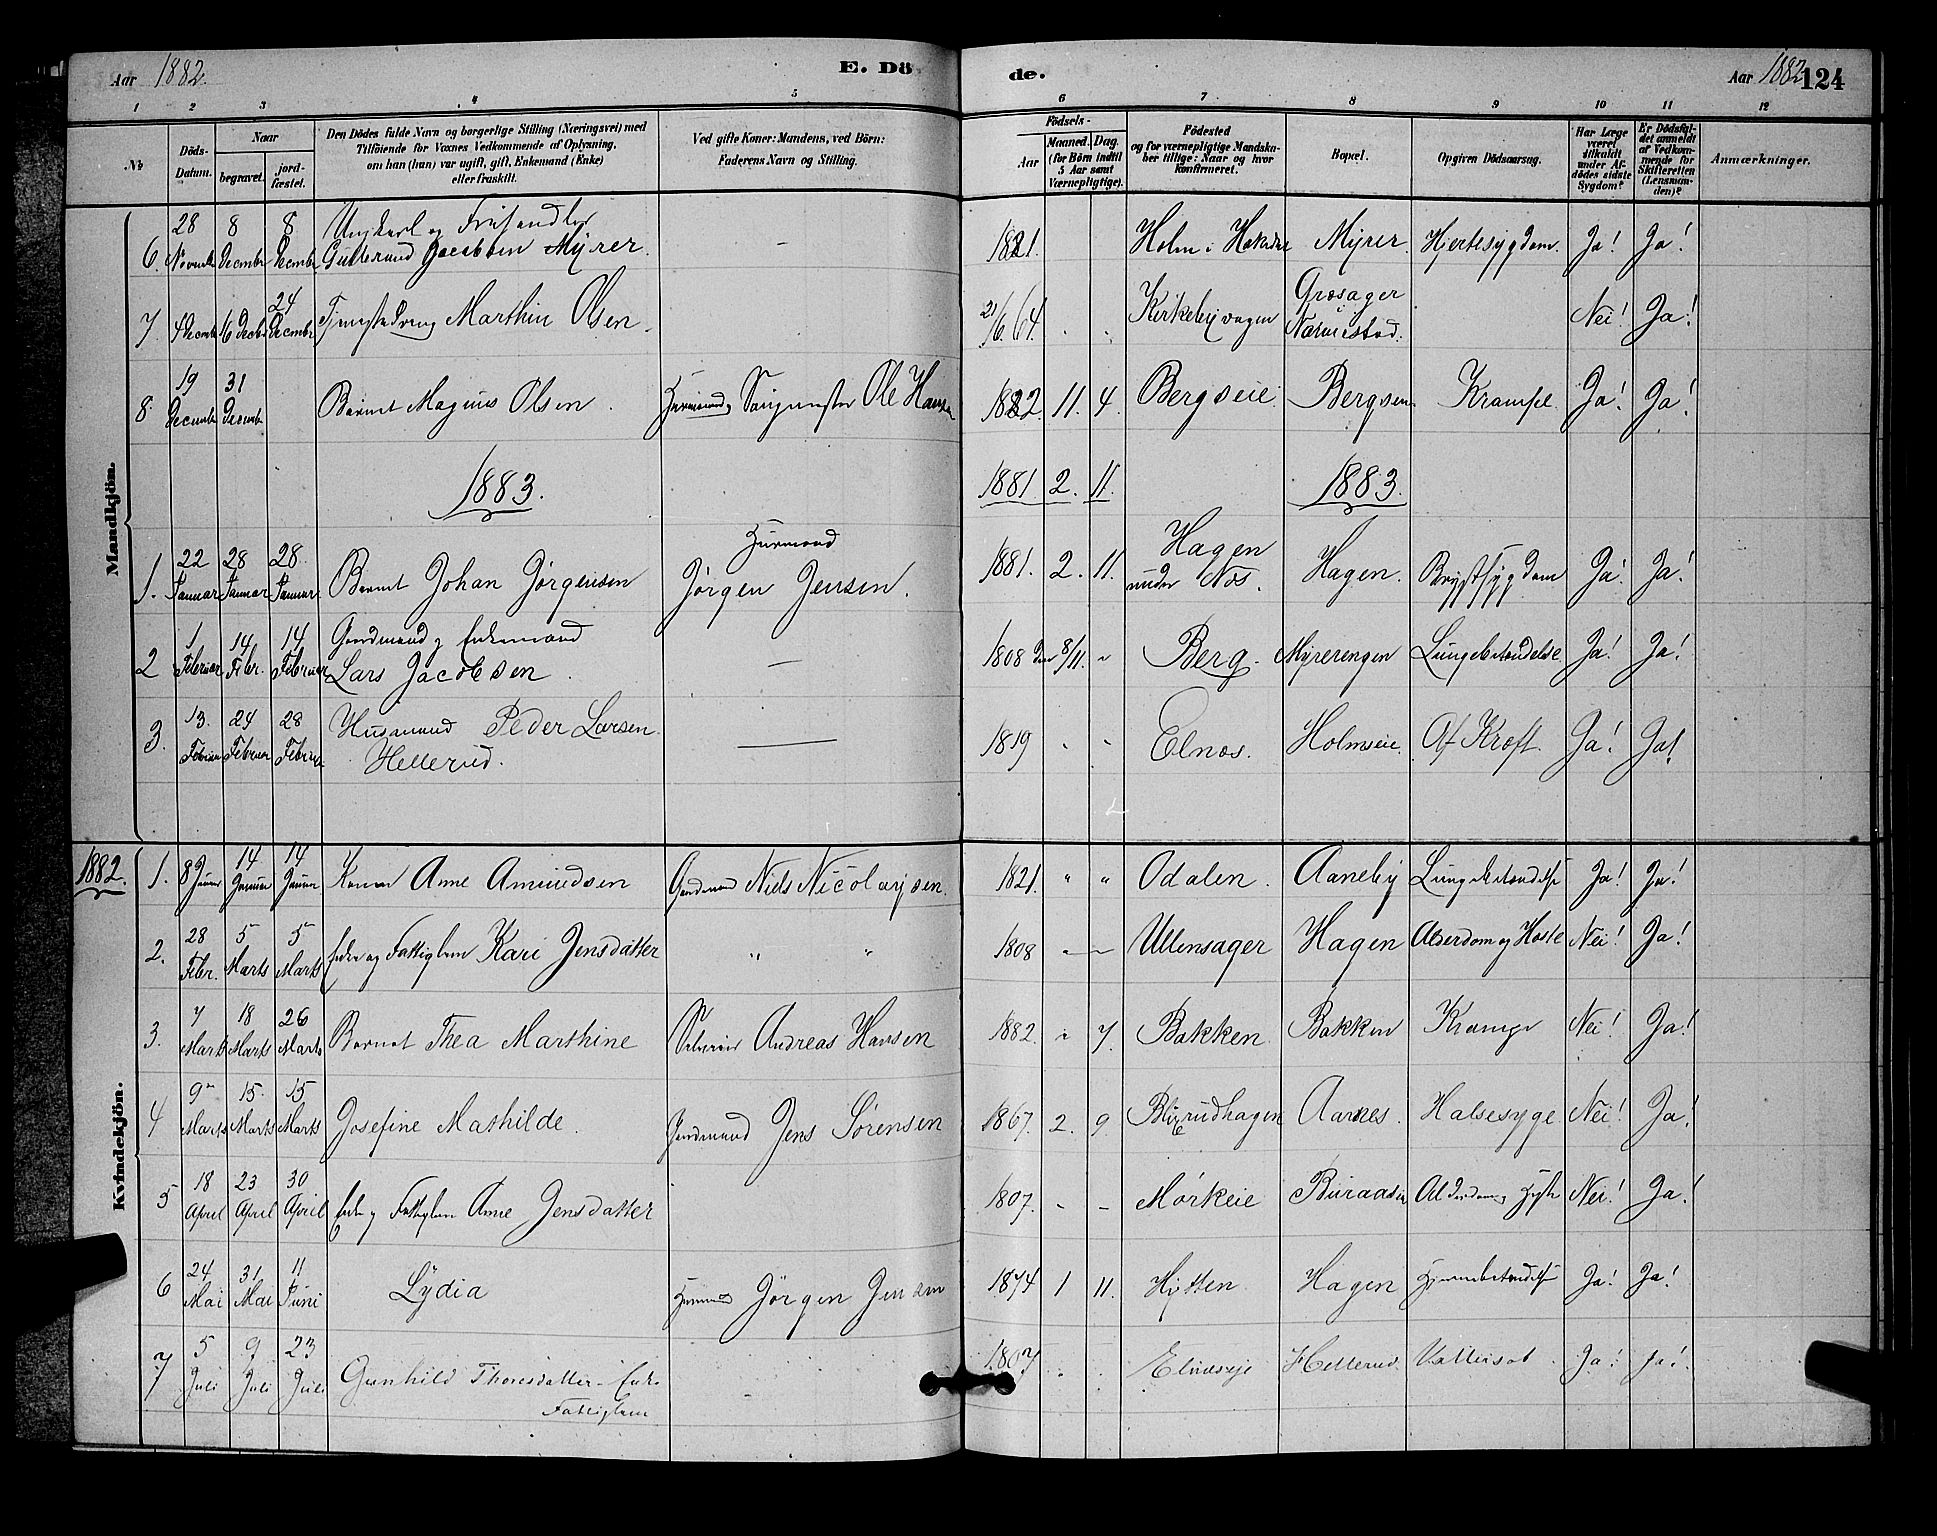 Aar 1882. E. Dö
de. Aar 1882 124
1 2 3 4 5 6 7 8 9 10 11 12
No
Döds-Datum.
Naar
begravet.
jord-fæstet.
Den Dödes fulde Navn og borgerlige Stilling (Næringsvei) med
Tilföiende for Voxnes Vedkommende af Oplysning,
om han (hun) var ugift, gift, Enkemand (Enke)
eller fraskilt.
Ved gifte Koner: Mandens, ved Börn:
Faderens Navn og Stilling.
Födsels-
Aar
Maaned. Dag.
(for Börn indtil
5 Aar samt
Værnepligtige).
Födested
og for værnepligtige Mandska-
ber tillige: Naar og hvor
konfirmeret.
Bopæl.
Opgiven Dödsaarsag.
Har Læge
været
tilkaldt
under Af-
dödes sidste
Sygdom?
Er Dödsfal-
det anmeldt
af Vedkom-
mende for
Skifteretten
(Lensman-
den)?
Anmærkninger.
Mandkjön.
6. 28 November 8 December 8 December Ungkarl og
Gulterand Jacobsen Myrer. - 1821. Holm i Myrer. Hjertesygdom. Ja! Ja!
7. 4 Decembr 16 Decbr 24 Decembr Tjenestedreng Marthin Olsen. 21/6. 64. Kirkebyvagen Græsager
Nei! Ja!
8. 19 Decembr 31 Decembr Barnet Magnus Olsen. Ole Hansen 1882. 11. 4. Bergseie Bergsen Krampe. Ja! Ja!
1883. 1881 2. 11. 1883.
1. 22 Januar 28 Januar 28. Januar Barnet Johan Jørgensen Husmand
Jørgen Jensen. 1881. 2. 11. Hagen
under Nos. Hagen. Brystsygdom Ja! Ja!
2 1 Februar 14 Febr. 14 Februar Gaardmand og Enkemand
Lars Jacobsen. - 1808 den 8/11. " Berg. Myrerengen Lungebetændelse Ja! Ja!
3. 13. Februar 24 Februar 28 Februar Husmand Peder Larsen
Hellerud. - 1819 " " Elnos. Holmseie. Af Kræft. Ja! Ja!
Kvindekjön.
1882. 1. 8 Januar 14 Januar 14 Januar Konen Anne Amundsen Gaardmand Niels Nicolaysen. 1821. " " Odalen. Aaneby Lungebetændelse Ja! Ja!
2. 28 Febr. 5 Marts 5 Marts Enke og Fattiglem Kari Jensdatter " " 1808 - - Ullensager Hagen Alderdom og Hoste Nei! Ja!
3. 7 Marts 18 Marts 26 Marts Barnet Thea Marthine Andreas Hansen 1882. " 7. Bakken Bakken Krampe Nei! Ja!
4 9 Marts 15. Marts 15 Marts Josefine Mathilde. Gaardmand Jens Sørensen 1867. 2. 9 Aarnes. Halsesyge. Nei! Ja!
5 18 April 23 April 30 April Enke og Fattiglem Anne Jensdatter 1807. - - Mørkeie Buraasen Alderdom Nei! Ja!
6 24 Mai 31 Mai 11 Juni Lydia Husmand Jørgen Jensen 1874 1 11. Hytten Hagen Hjernebetændelse Ja! Ja!
7 5 Juli 9 Juli 23 Juli Gunhild Thoresdatter - Enke
Fattiglem 1807 " " Elnæseje Hellerud. Vattersot. Ja! Ja!